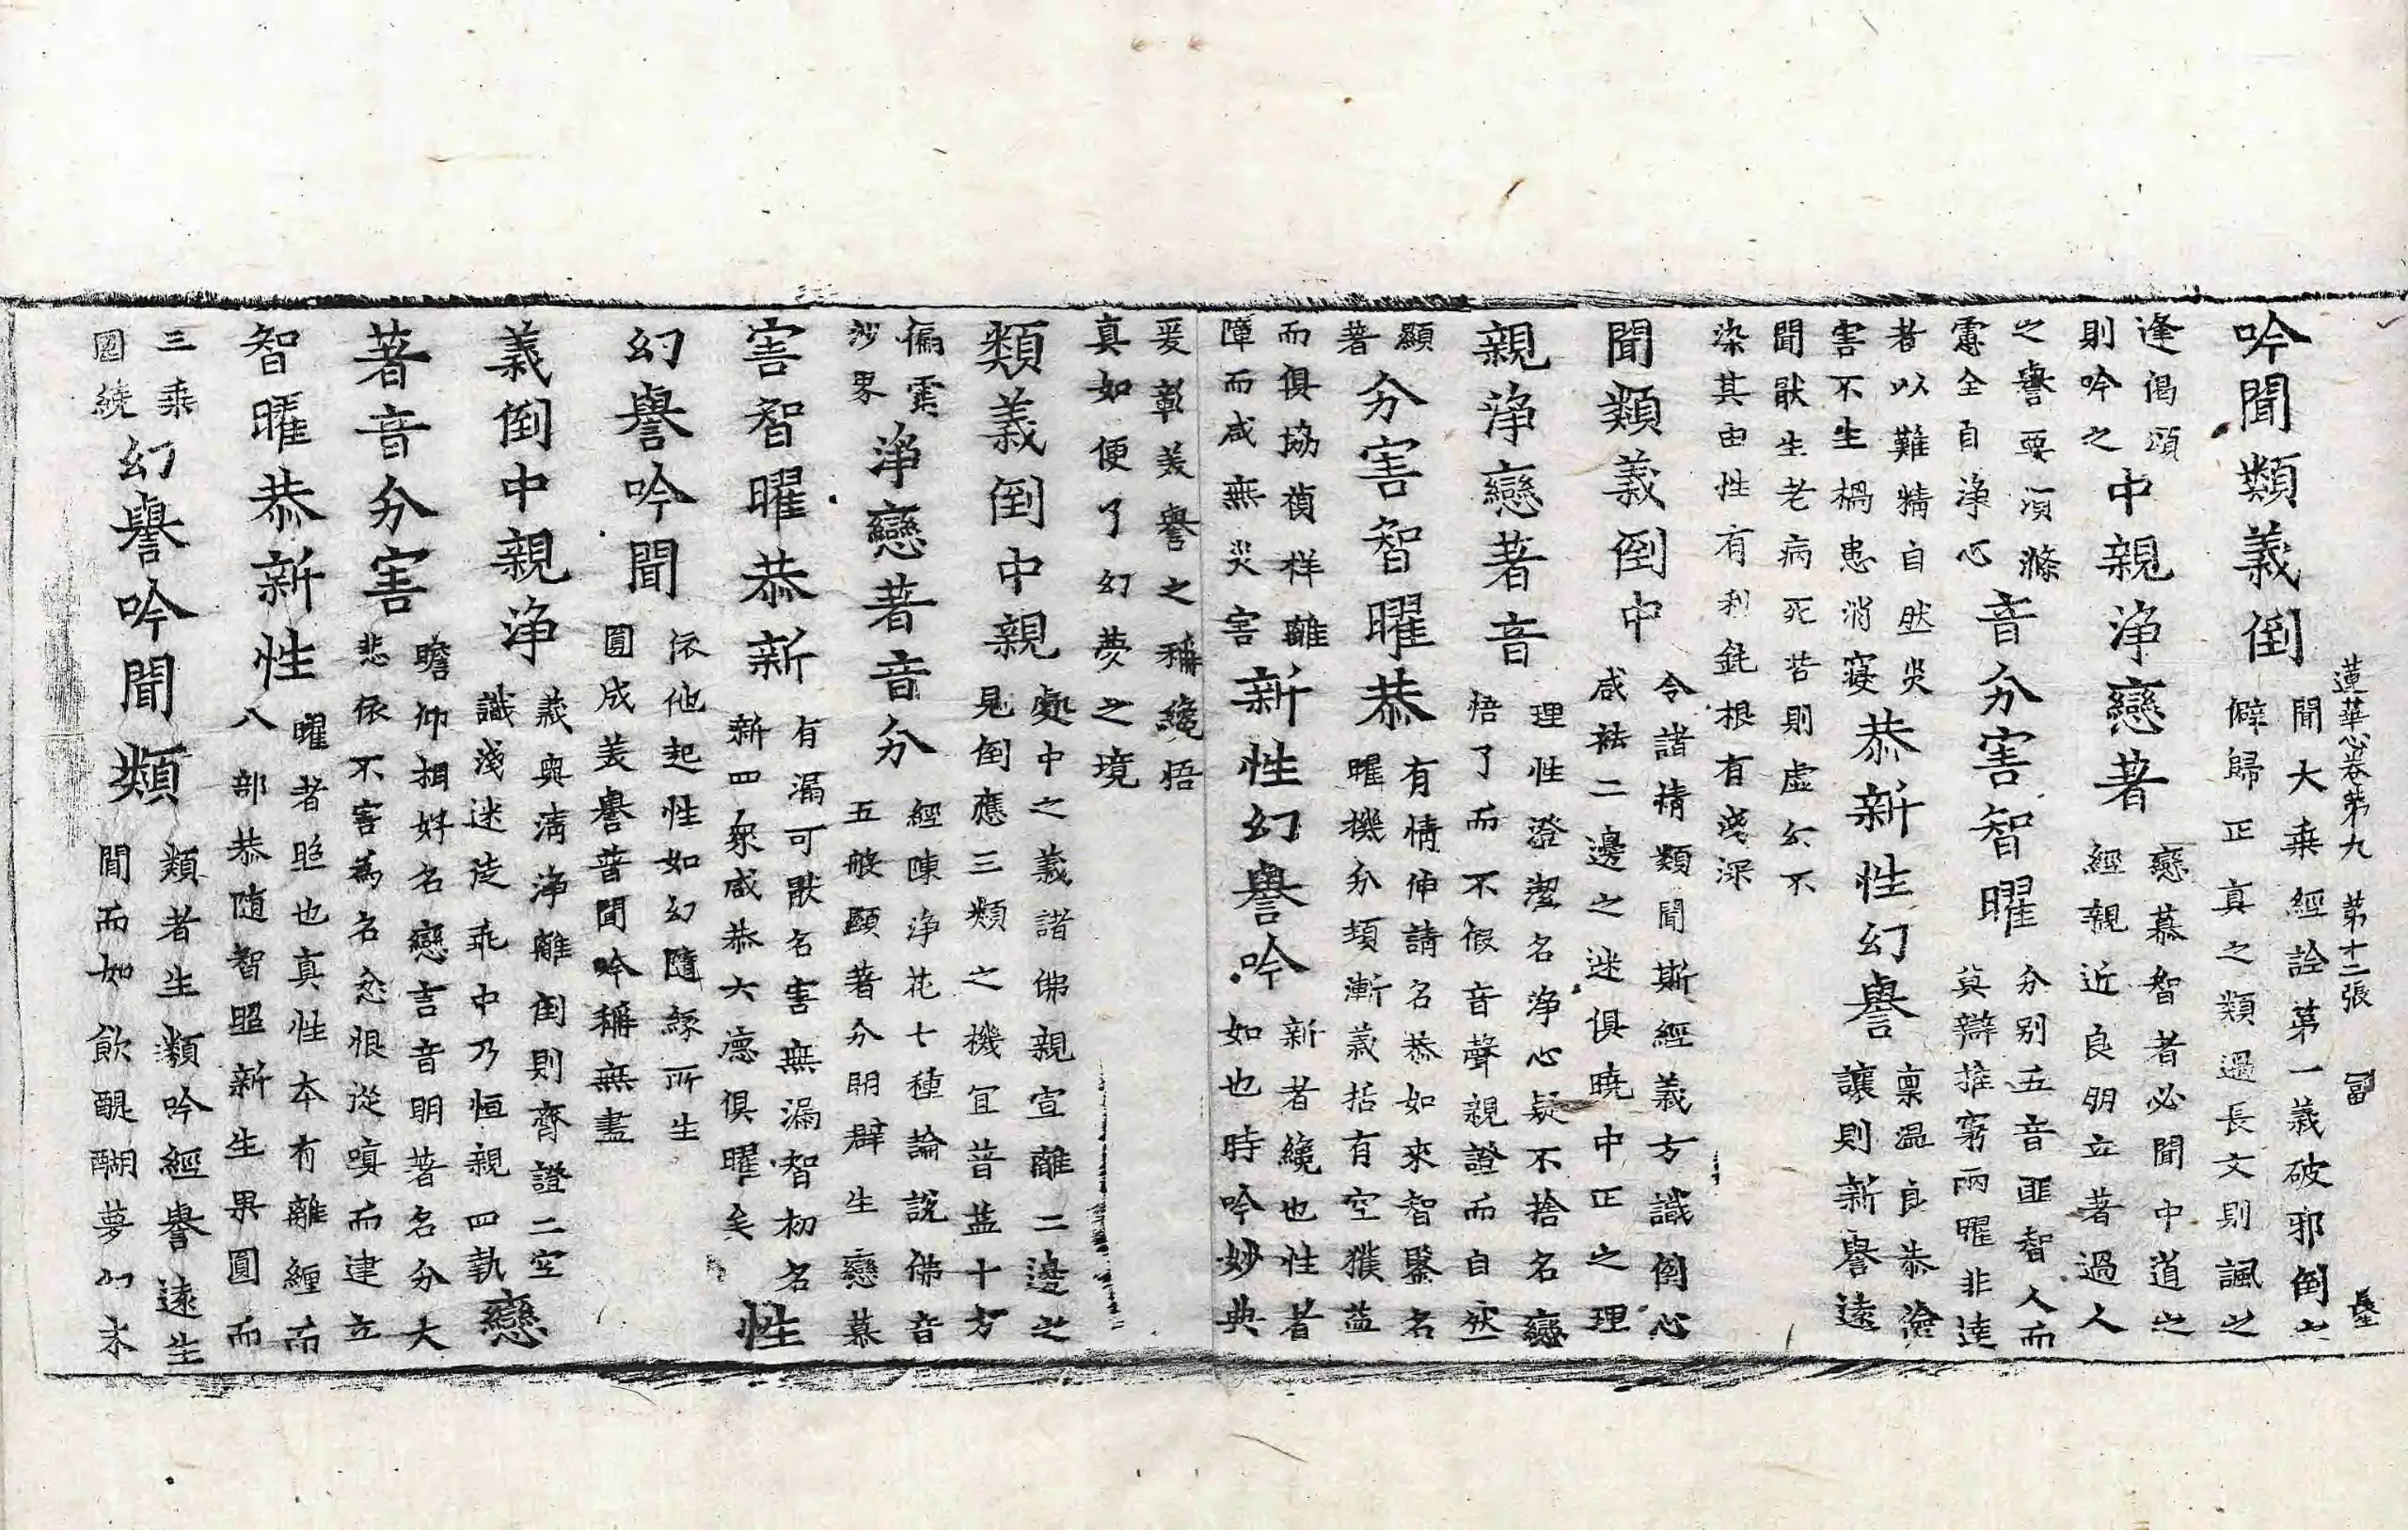 蓮華心卷第九 第十二張 冨
吟聞類義倒
聞大乗經詮第一義破邪倒之
僻歸正真之類過長文則諷之
逢偈頌
則吟之
中親淨戀著
戀慕智者必聞中道之
經親近良朋立著過人
之譽要須滌
慮全自淨心
音分害智曜
分别五音匪智人而
莫辯推窮兩曜非逹
者以難精自然災
害不生禍患消寝
恭新性幻譽
禀温良恭滄
讓則新譽逺
聞猒生老病死苦則虚幻不
染其由性有利鈍根有淺深
聞類義倒中
令諸精類聞斯經義方識倒心
咸袪二邊之迷俱曉中正之理
親淨戀著音
理性澄潔名淨心疑不捨名戀
悟了而不假音聲親證而自然
顯
著
分害智曜恭
有情伸請名恭如來智鑒名
曜機分頓漸義括有空獲益
而俱協禎祥離
障而咸無災害
新性幻譽吟
新者纔也性者
如也時吟妙典
爰彰美譽之稱纔悟
真如便了幻夢之境
類義倒中親
處中之義諸佛親宣離二邊之
見倒應三類之機冝普益十方
徧霑
沙界
淨戀著音分
經陳淨花七種論說佛音
五般顯著分明群生戀慕
害智曜恭新
有漏可猒名害無漏智初名
新四衆咸恭六徳俱曜矣
性
幻譽吟聞
依他起性如幻隨緣所生
圓成美譽普聞吟稱無盡
義倒中親淨
義奥清淨離倒則齊證二空
識淺迷徒乖中乃恒親四執
戀
著音分害
瞻仰相好名戀言音明著名分大
悲依不害為名忿恨從嗔而建立
智曜恭新性
曜者照也真性本有離纏而
八部恭随智照新生果圓而
三乗
圍繞
幻譽吟聞類
類者生類吟經譽逺生
聞而如飲醍醐夢幻未